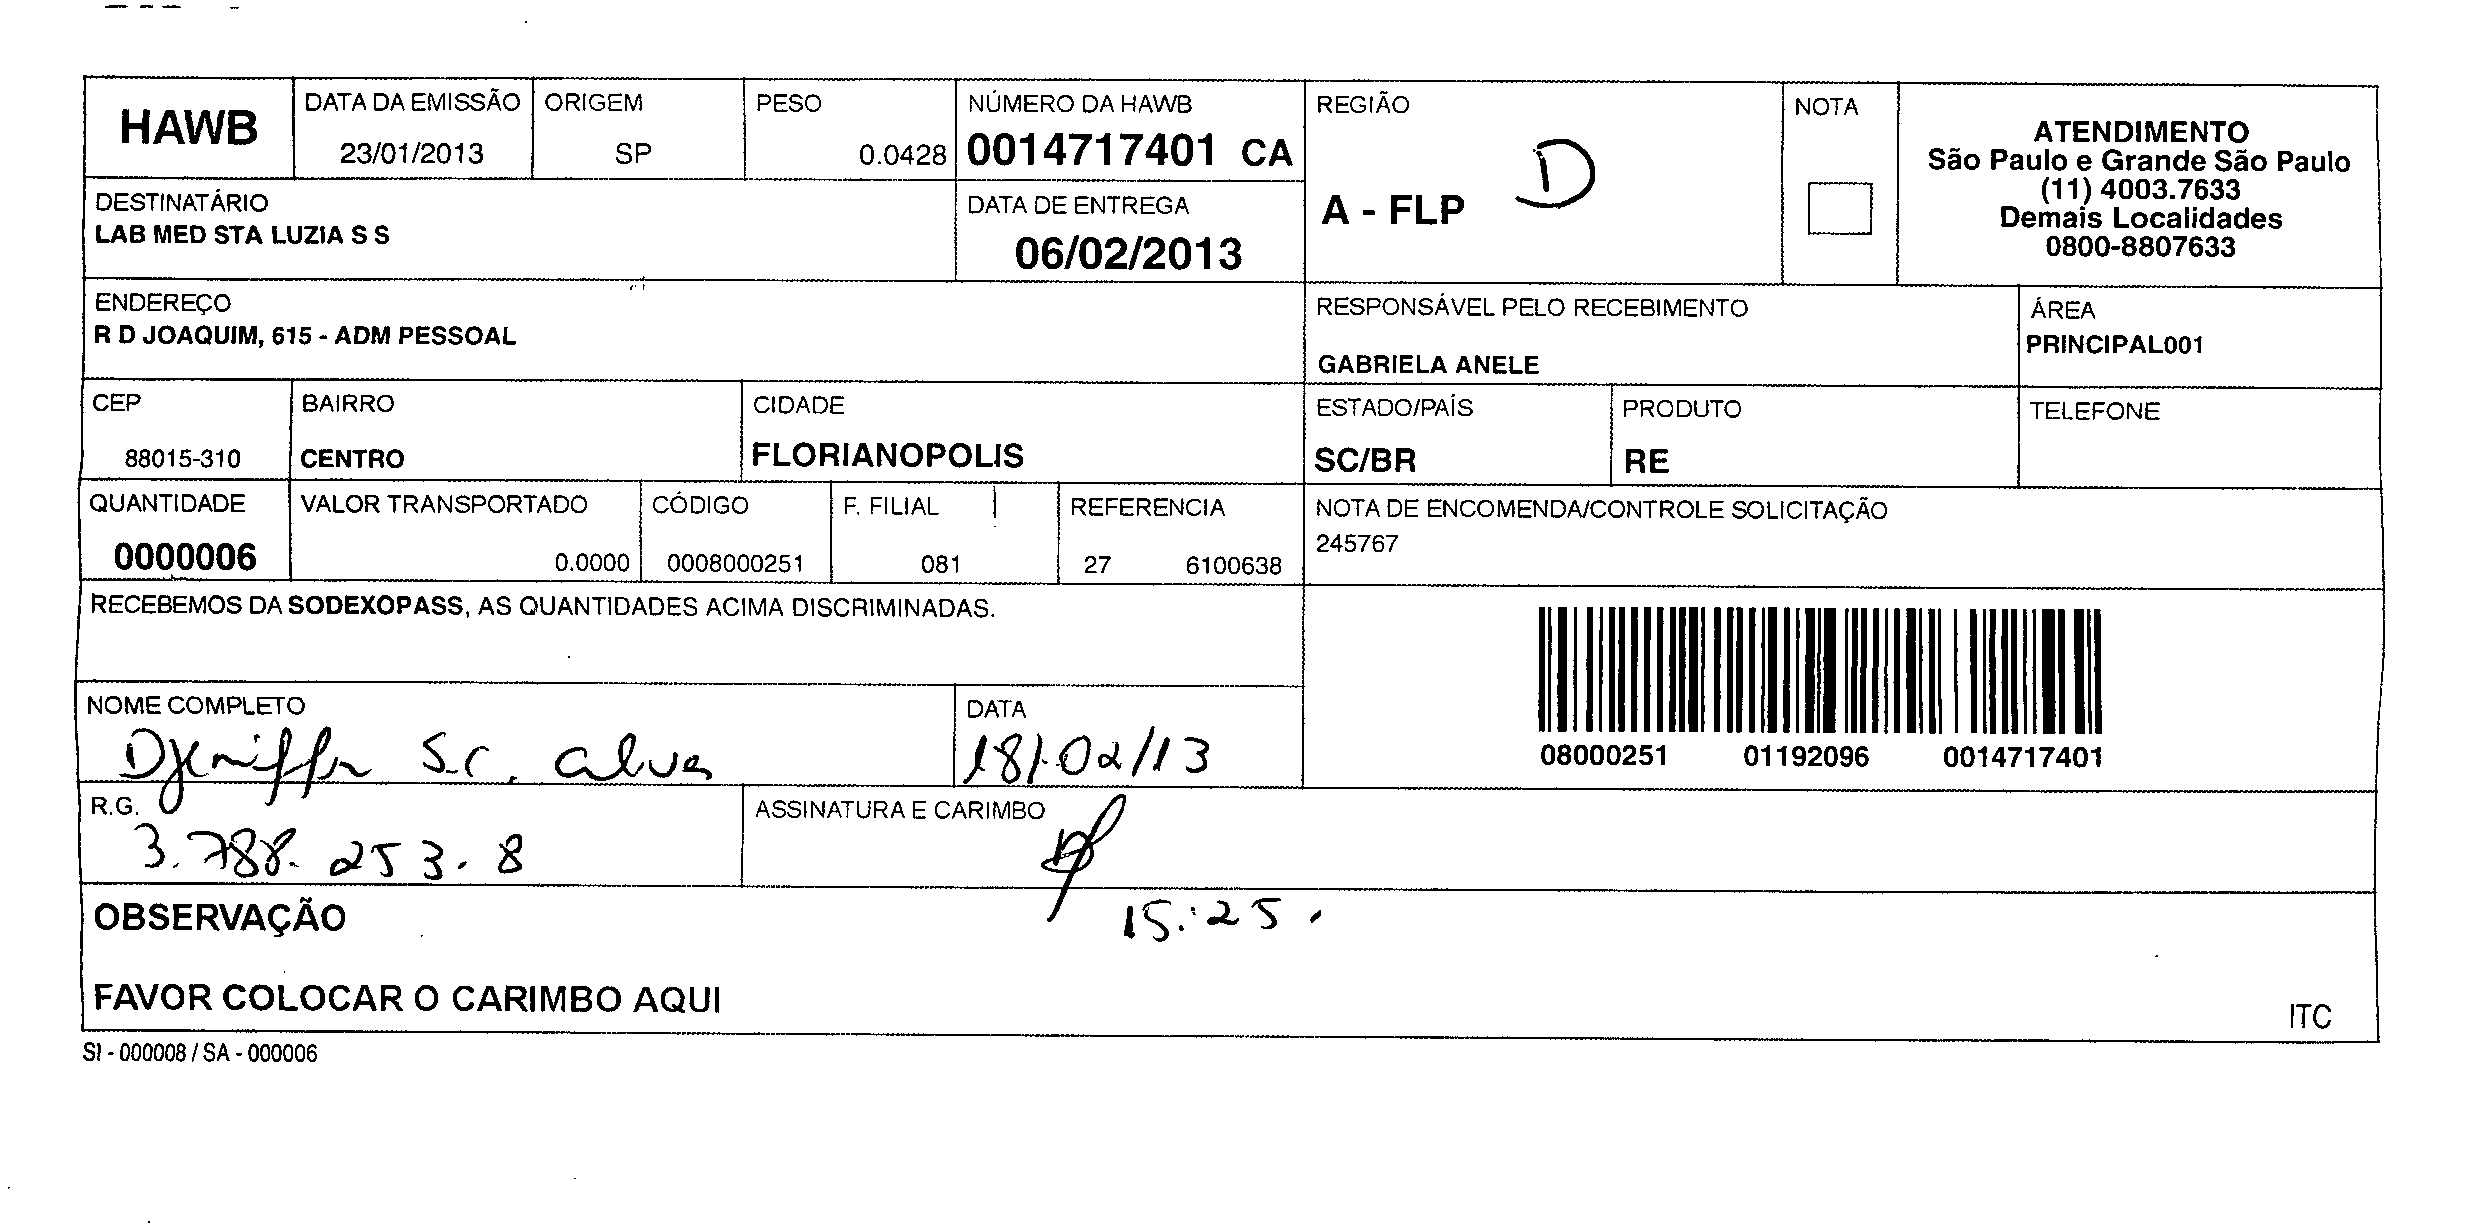 HAWB
DATA DA EMISSÃO
23/01/2013
ORIGEM
SP
PESO
0.0428
NÚMERO DA HAWB
0014717401 CA
REGIÃO
A - FLP D
NOTA
ATENDIMENTO
São Paulo e Grande São Paulo
(11) 4003.7633
Demais Localidades
0800-8807633
DESTINATÁRIO
LAB MED STA LUZIA S S
DATA DE ENTREGA
06/02/2013
ENDEREÇO
R D JOAQUIM, 615 - ADM PESSOAL
RESPONSÁVEL PELO RECEBIMENTO
GABRIELA ANELE
ÁREA
PRINCIPAL001
CEP
88015-310
BAIRRO
CENTRO
CIDADE
FLORIANOPOLIS
ESTADO/PAÍS
SC/BR
PRODUTO
RE
TELEFONE
QUANTIDADE
0000006
VALOR TRANSPORTADO
0.0000
CÓDIGO
0008000251
F. FILIAL
081
REFERENCIA
27 6100638
NOTA DE ENCOMENDA/CONTROLE SOLICITAÇÃO
245767
RECEBEMOS DA SODEXOPASS, AS QUANTIDADES ACIMA DISCRIMINADAS.
08000251 01192096 0014717401
NOME COMPLETO
S.C. Alves
DATA
18/02/13
R.G.
3.788.253.8
ASSINATURA E CARIMBO
15:25.
OBSERVAÇÃO
FAVOR COLOCAR O CARIMBO AQUI
ITC
SI - 000008 / SA - 000006